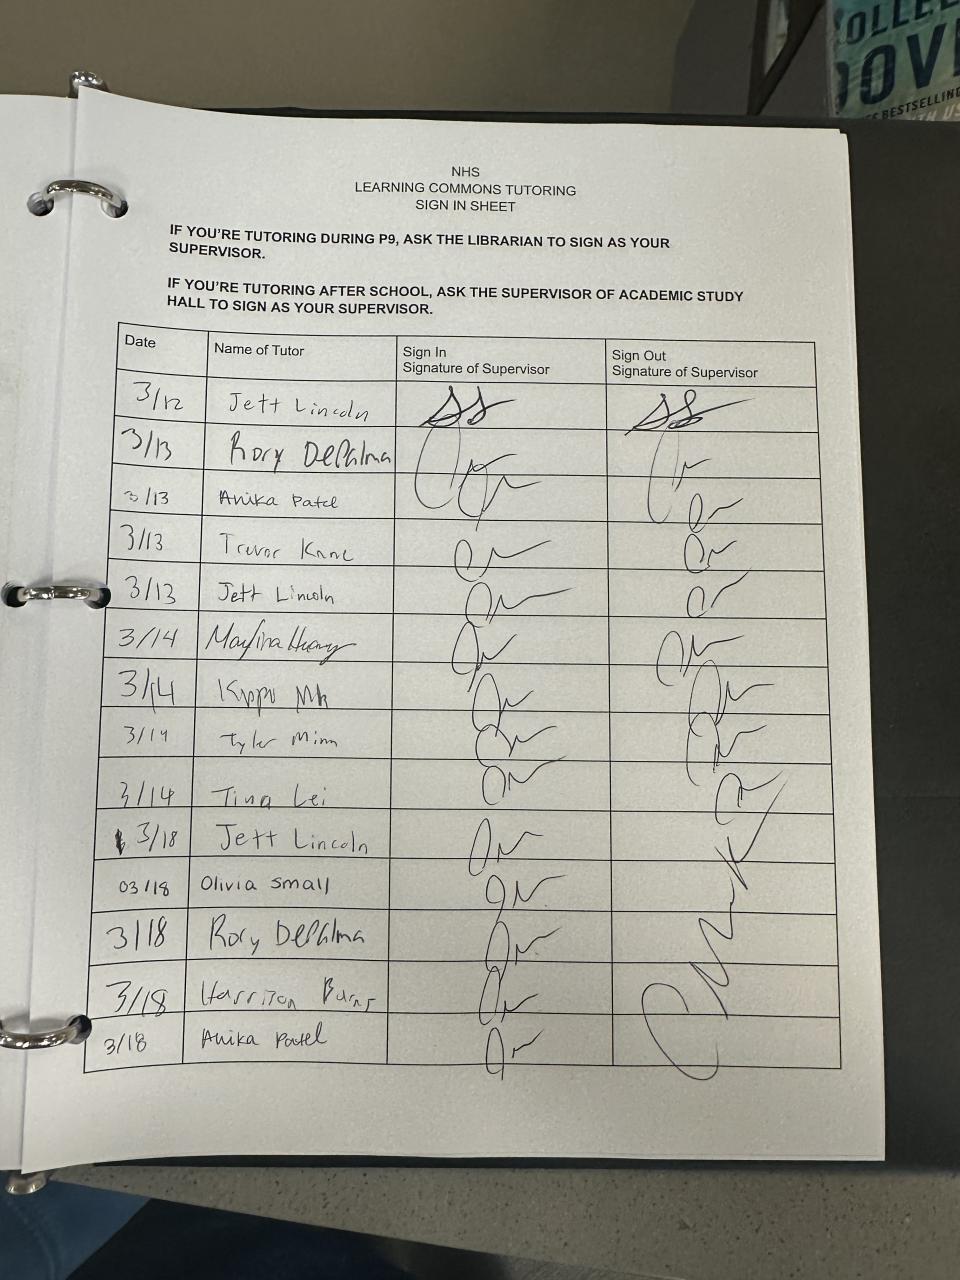 OLLEE
OVE
BESTSELLING
NHS
LEARNING COMMONS TUTORING
SIGN IN SHEET
IF YOU'RE TUTORING DURING P9, ASK THE LIBRARIAN TO SIGN AS YOUR
SUPERVISOR.
IF YOU'RE TUTORING AFTER SCHOOL, ASK THE SUPERVISOR OF ACADEMIC STUDY
HALL TO SIGN AS YOUR SUPERVISOR.
Date Name of Tutor Sign In Signature of Supervisor Sign Out Signature of Supervisor
3/12 Jett Lincoln SS SS
3/13 Rory DePalma
3/13 Anika Patel
3/13 Trevor Kane
3/13 Jett Lincoln
3/14
3/14
3/14 Tyler Minn
3/14 Tina Lei
3/18 Jett Lincoln
03/18 Olivia Small
3/18 Rory DePalma
3/18 Harrison Burns
3/18 Anika Patel